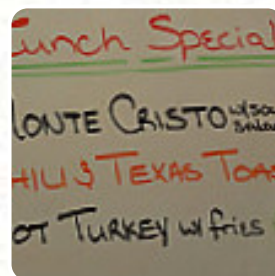 Lunch Special
MONTE CRISTO w/SOUP
CHILI & TEXAS TOAS
HOT TURKEY w/ fries